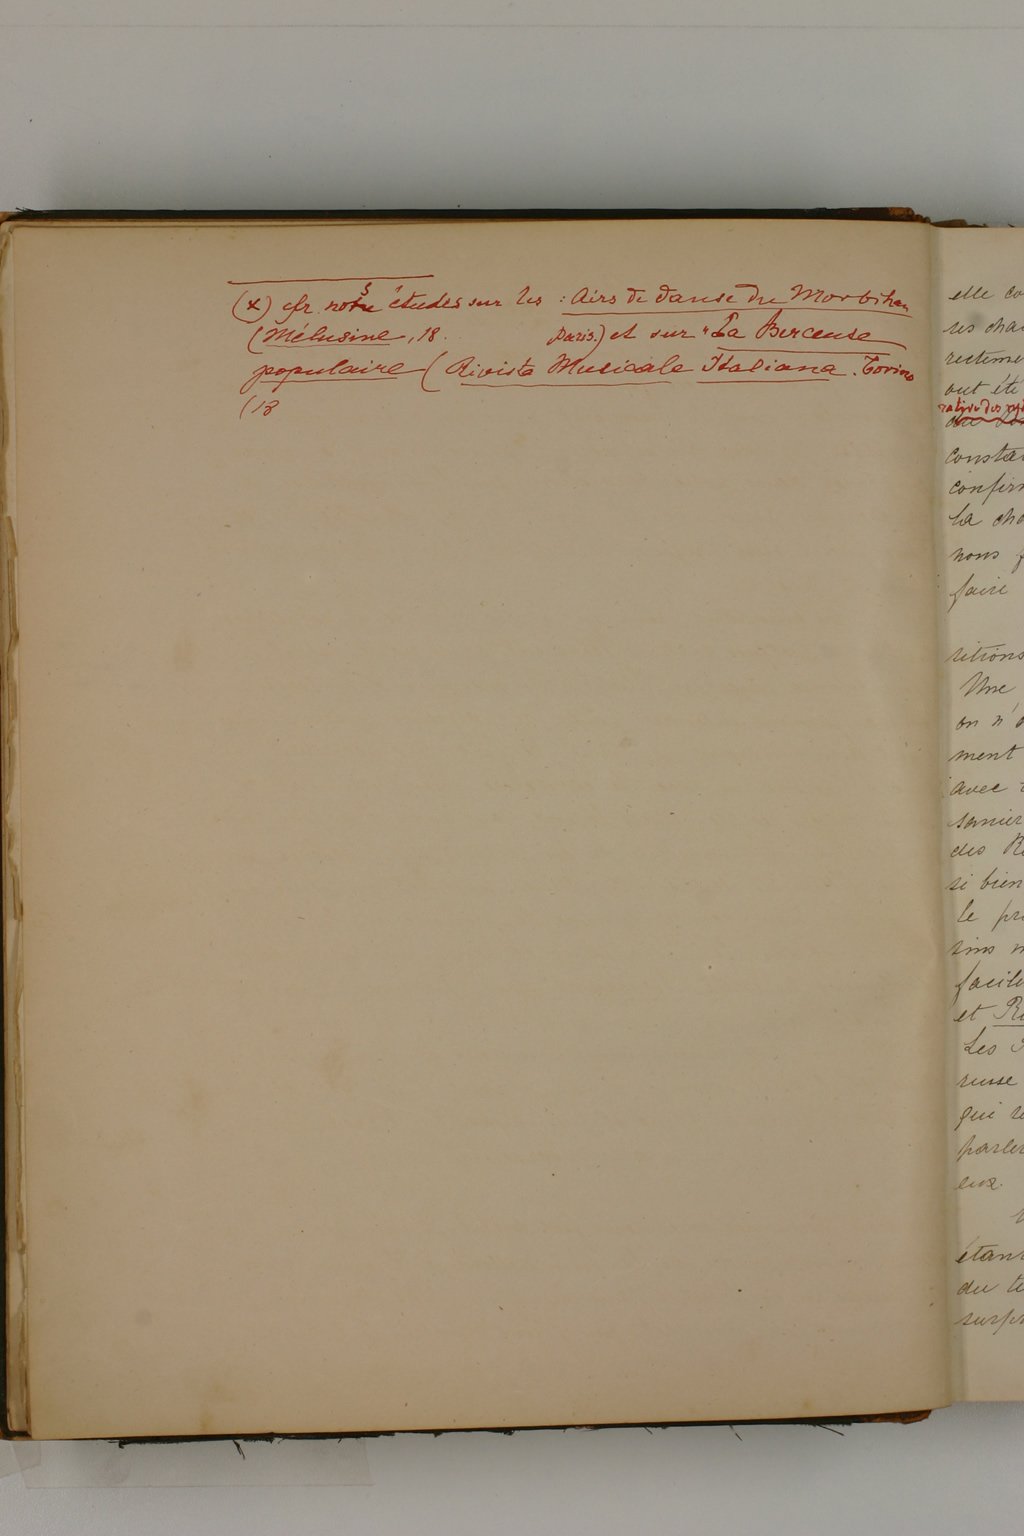 (x) cfr. nos études sur les : Airs de danse du Morbihan
(Mélusine, 18. Paris.) et sur "La Berceuse
populaire (Rivista Musicale Italiana. Torino
(18
elle
ses
recteme
ont été
consta
confir
la cha
nous f
faire
sitions
Une
on n'
ment
avec
des
si bien
le pr
facile
et
Les
russe
qui
parler
eux.
étant
du te
surpr